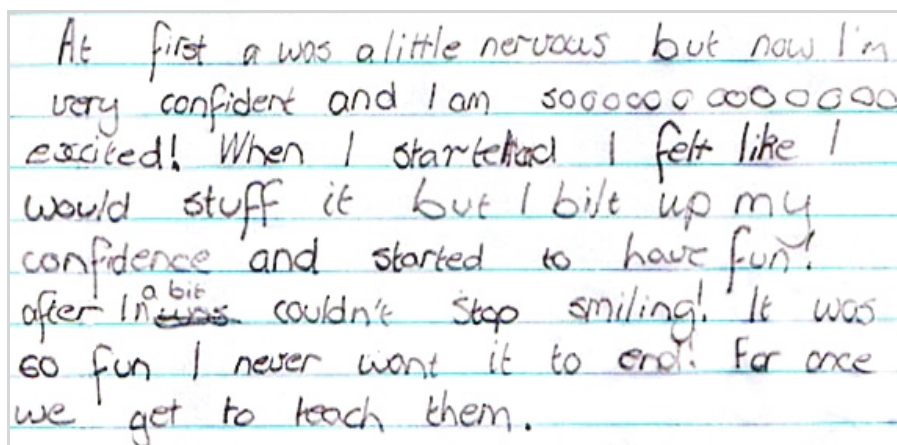 At first a was a little nervous but now I'm
very confident and I am sooooooooooooo
excited! When I started I felt like I
would stuff it but I bilt up my
confidence and started to have fun!
after In a bit couldn't stop smiling! It was
so fun I never want it to end! For once
we get to teach them.